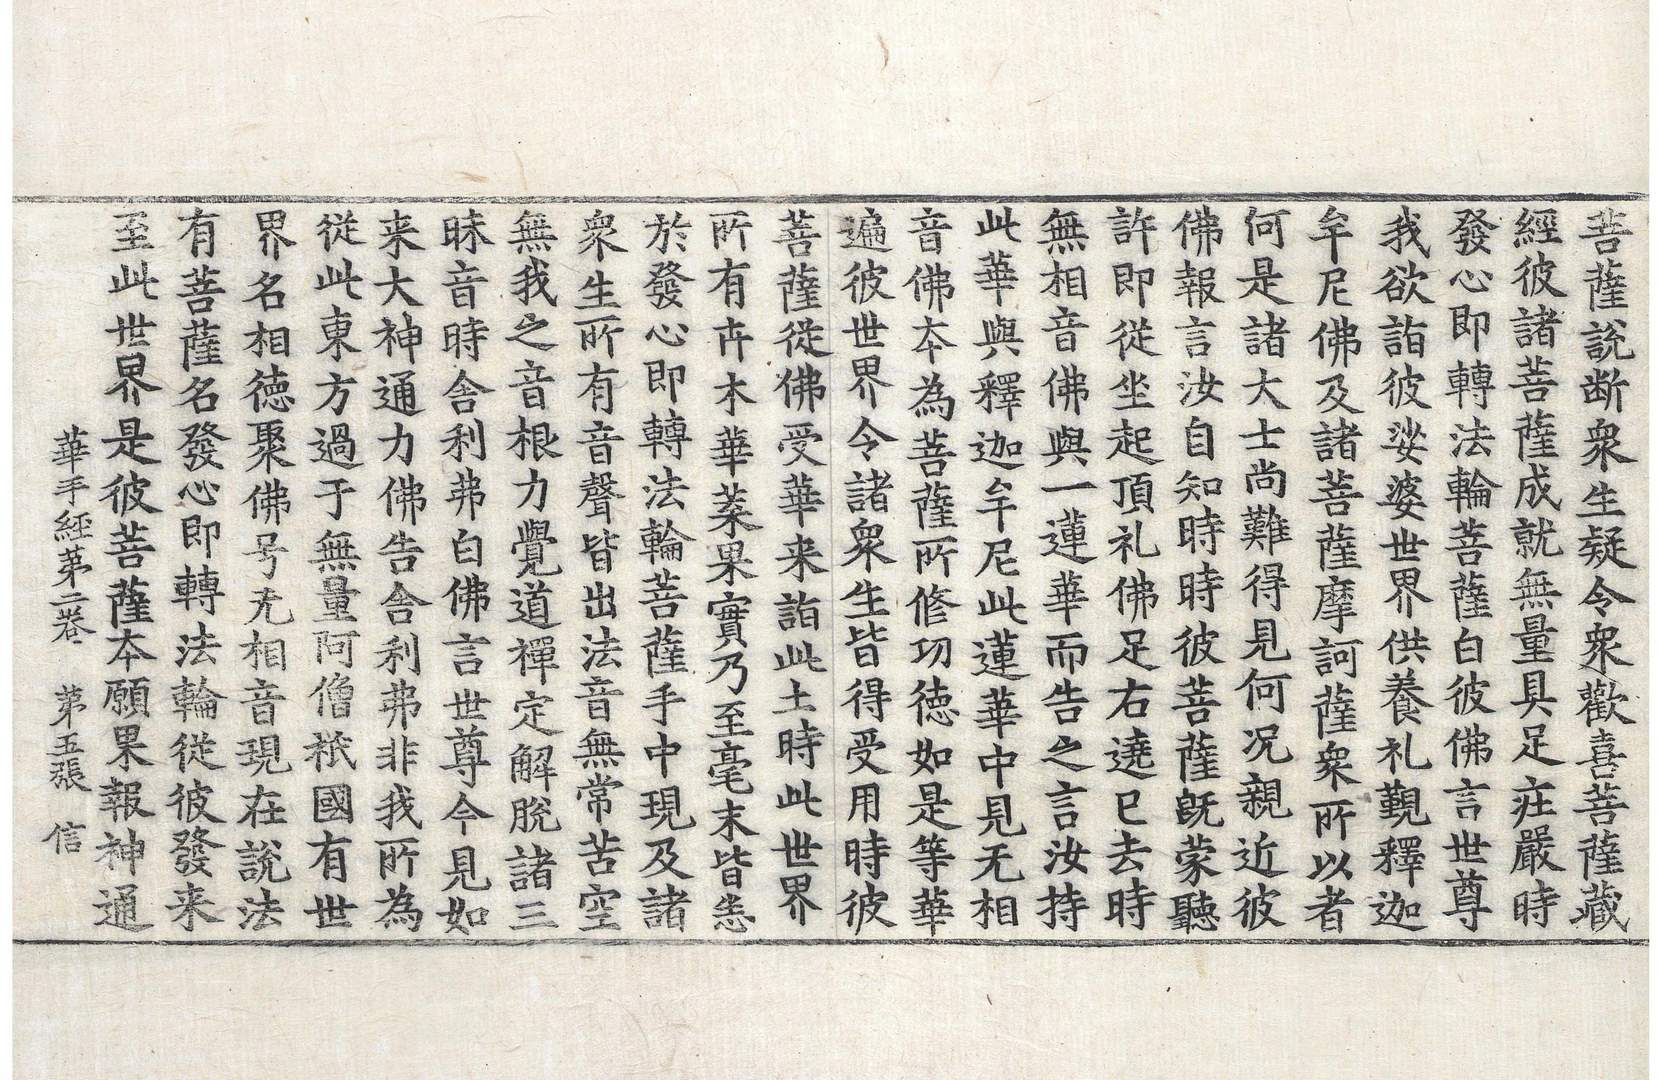 菩薩說断衆生疑令衆歡喜菩薩藏
經彼諸菩薩成就無量具足疘嚴時
發心即轉法輪菩薩白彼佛言世尊
我欲詣彼娑婆世界供養礼覲釋迦
牟尼佛及諸菩薩摩訶薩衆所以者
何是諸大士尚難得見何况親近彼
佛報言汝自知時時彼菩薩旣蒙聽
許即從坐起頂礼佛足右遶已去時
無相音佛與一蓮華而告之言汝持
此華與釋迦牟尼此蓮華中見无相
音佛夲為菩薩所修功德如是等華
遍彼世界令諸衆生皆得受用時彼
菩薩從佛受華来詣此土時此世界
所有卉木華葉果實乃至毫末皆悉
於發心即轉法輪菩薩手中現及諸
衆生所有音聲皆出法音無常苦空
無我之音根力覺道禪定解脫諸三
昧音時舍利弗白佛言世尊今見如
来大神通力佛告舍利弗非我所為
從此東方過于無量阿僧祇國有世
界名相德聚佛号无相音現在說法
有菩薩名發心即轉法輪從彼發来
至此世界是彼菩薩夲願果報神通
華手經第二卷 第五張 信